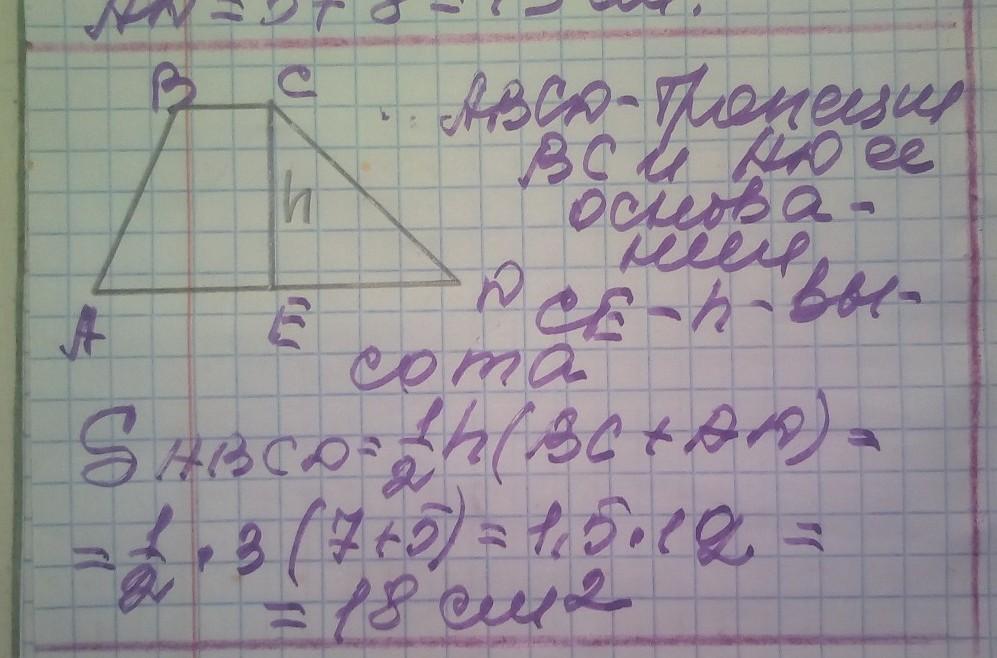 AD = 5 + 8 = 13 см.
B C
ABCD - Трапеция
BC и AD ее
h
основа-
нии
A E D
CE - h - вы-
сота
S ABCD = 1/2 h (BC + AD) =
= 1/2 · 3 (7+5) = 1,5 · 12 =
= 18 см2